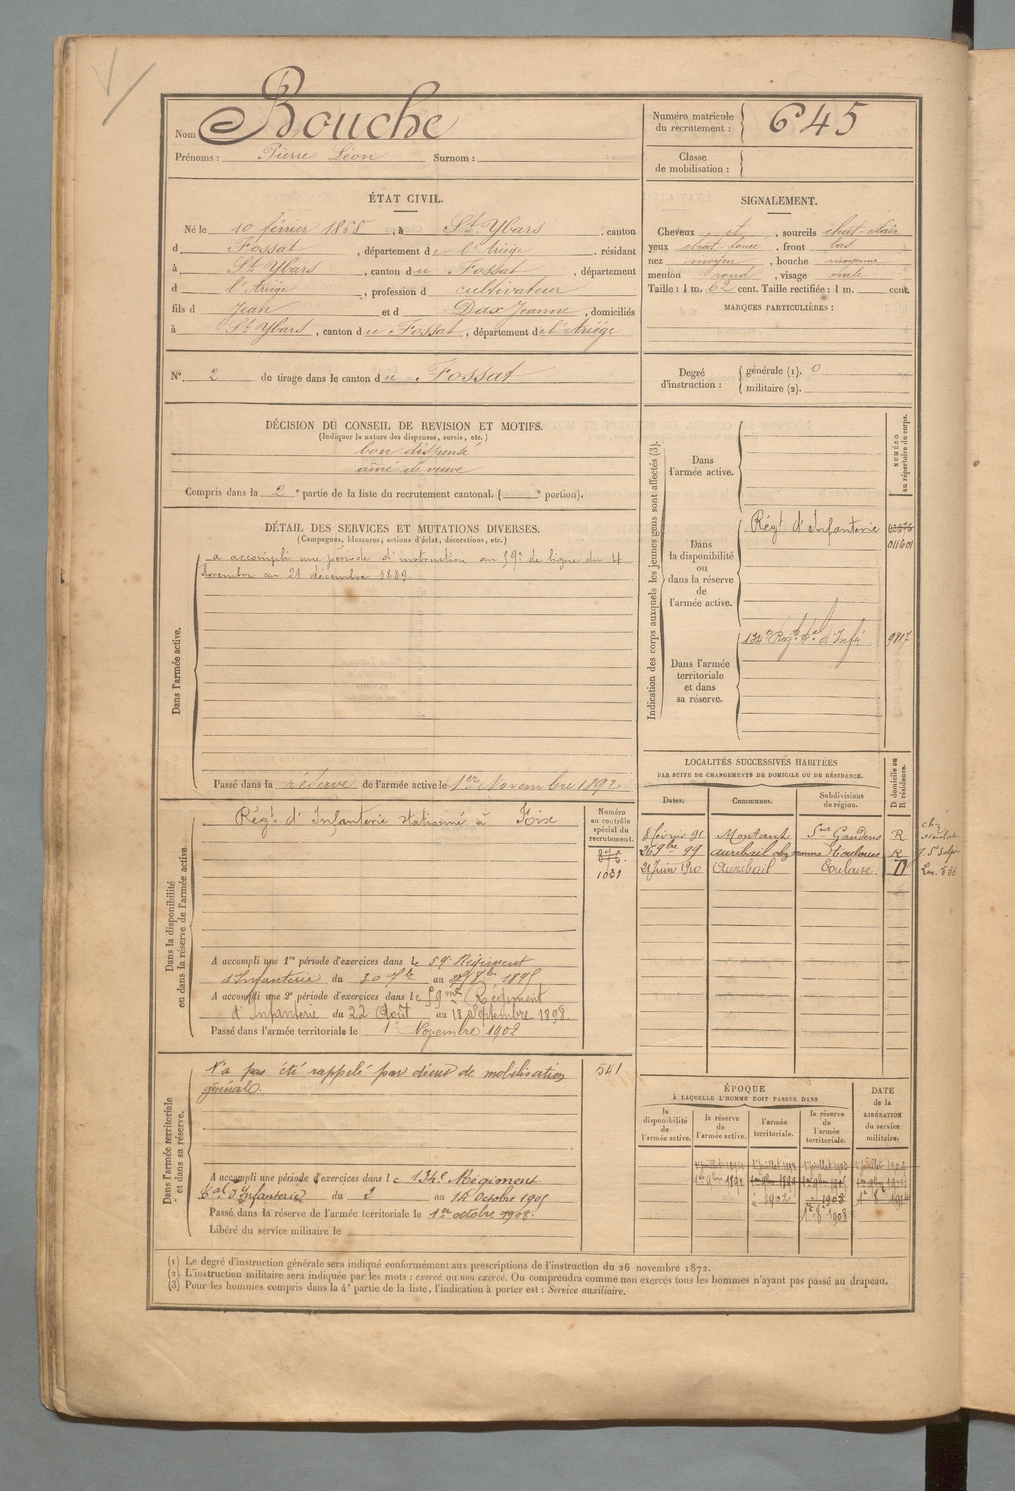 Nom Bouche
Prénoms : Pierre Léon Surnom :
Numéro matricule du recrutement : 645
Classe de mobilisation :
ÉTAT CIVIL.
Né le 10 février 1868, à St Ybars, canton
d Fossat, département de l'Ariège, résidant
à St Ybars, canton du Fossat, département
d l'Ariège, profession d cultivateur
fils d Jean et d Dax Jeanne, domiciliés
à St Ybars, canton du Fossat, département de l'Ariège
SIGNALEMENT.
Cheveux et, sourcils chat-clair
yeux chat foncé, front bas
nez moyen, bouche moyenne
menton rond, visage ovale
Taille : 1 m. 62 cent. Taille rectifiée : 1 m. cent.
MARQUES PARTICULIÈRES :
N° 2 de tirage dans le canton du Fossat
Degré d'instruction : générale (1). 0
militaire (2).
DÉCISION DU CONSEIL DE REVISION ET MOTIFS.
(Indiquer la nature des dispenses, sursis, etc.)
bon dispensé
aîné de veuve
Compris dans la 2e partie de la liste du recrutement cantonal. ( e portion).
DÉTAIL DES SERVICES ET MUTATIONS DIVERSES.
(Campagnes, blessures, actions d'éclat, décorations, etc.)
Dans l'armée active.
a accompli une période d'instruction au 59e de ligne du 4
Novembre au 21 décembre 1889
Passé dans la réserve de l'armée active le 1er Novembre 1892
Indication des corps auxquels les jeunes gens sont affectés (3).
NUMÉRO au répertoire du corps.
Dans l'armée active.
Dans la disponibilité ou dans la réserve de l'armée active.
Régt d'Infanterie
011601
Dans l'armée territoriale et dans sa réserve.
134e Régt Tal d'Infie 9817
Dans la disponibilité ou dans la réserve de l'armée active.
Régt d'Infanterie stationné à Foix
Numéro au contrôle spécial du recrutement.
1031
A accompli une 1re période d'exercices dans le 59e Régiment
d'Infanterie du 30 7bre au 8bre 1895
A accompli une 2e période d'exercices dans le 59me Régiment
d'Infanterie du 22 Août au 18 Septembre 1898.
Passé dans l'armée territoriale le 1er Novembre 1902
LOCALITÉS SUCCESSIVES HABITÉES
PAR SUITE DE CHANGEMENTS DE DOMICILE OU DE RÉSIDENCE.
Dates. Communes. Subdivisions de région. D domicile ou R résidence.
8 février 91 Montaut St Gaudens R
26 9bre 99 Auribail Toulouse R
21 Juin 1910 Auribail Toulouse D
Dans l'armée territoriale et dans sa réserve.
N'a pas été rappelé par décret de mobilisation
générale.
541
A accompli une période d'exercices dans le 134e Régiment
Tal d'Infanterie du 2 au 14 Octobre 1905
Passé dans la réserve de l'armée territoriale le 1er octobre 1908.
Libéré du service militaire le
ÉPOQUE
À LAQUELLE L'HOMME DOIT PASSER DANS
la disponibilité de l'armée active.
la réserve de l'armée active.
l'armée territoriale.
la réserve de l'armée territoriale.
DATE de la LIBÉRATION du service militaire.
(1) Le degré d'instruction générale sera indiqué conformément aux prescriptions de l'instruction du 26 novembre 1872.
(2) L'instruction militaire sera indiquée par les mots : exercé ou non exercé. On comprendra comme non exercés tous les hommes n'ayant pas passé au drapeau.
(3) Pour les hommes compris dans la 4e partie de la liste, l'indication à porter est : Service auxiliaire.